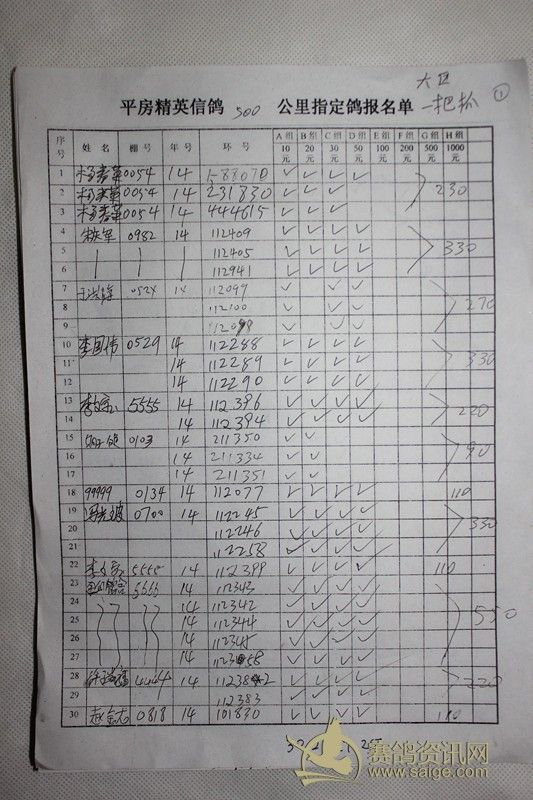 大区
平房精英信鸽 500 公里指定鸽报名单 一把抓 ①
序号 姓名 棚号 年号 环号 A组10元 B组20元 C组30元 D组50元 E组100元 F组200元 G组500元 H组1000元
1 0054 14 ✓ ✓ ✓ ✓
2 0054 14 231830 ✓ ✓ ✓ 230
3 0054 14 444615 ✓ ✓ ✓
4 0982 14 112409 ✓ ✓ ✓ ✓
5 112405 ✓ ✓ ✓ ✓ 330
6 112941 ✓ ✓ ✓ ✓
7 14 112099 ✓ ✓ ✓
8 112100 ✓ ✓ ✓ 270
9 ✓ ✓ ✓
10 李国伟 0529 14 112288 ✓ ✓ ✓ ✓
11 14 112289 ✓ ✓ ✓ ✓ 330
12 14 112290 ✓ ✓ ✓ ✓
13 5555 14 112396 ✓ ✓ ✓ ✓ 220
14 14 112394 ✓ ✓ ✓ ✓
15 0103 14 211350 ✓ ✓
16 14 211334 ✓ ✓ 90
17 14 211351 ✓ ✓
18 99999 0134 14 112077 ✓ ✓ ✓ ✓ 110
19 0700 14 112245 ✓ ✓ ✓ ✓
20 112246 ✓ ✓ ✓ ✓ 330
21 112258 ✓ ✓ ✓ ✓
22 5555 14 112399 ✓ ✓ ✓ ✓ 110
23 5555 14 112343 ✓ ✓ ✓ ✓
24 14 112342 ✓ ✓ ✓ ✓
25 14 112344 ✓ ✓ ✓ ✓ 550
26 14 112345 ✓ ✓ ✓ ✓
27 14 ✓ ✓ ✓ ✓
28 14 ✓ ✓ ✓ ✓ 220
29 112383 ✓ ✓ ✓ ✓
30 赵金龙 0818 14 101830 ✓ ✓ ✓ ✓ 110
赛鸽资讯网
www.saige.com